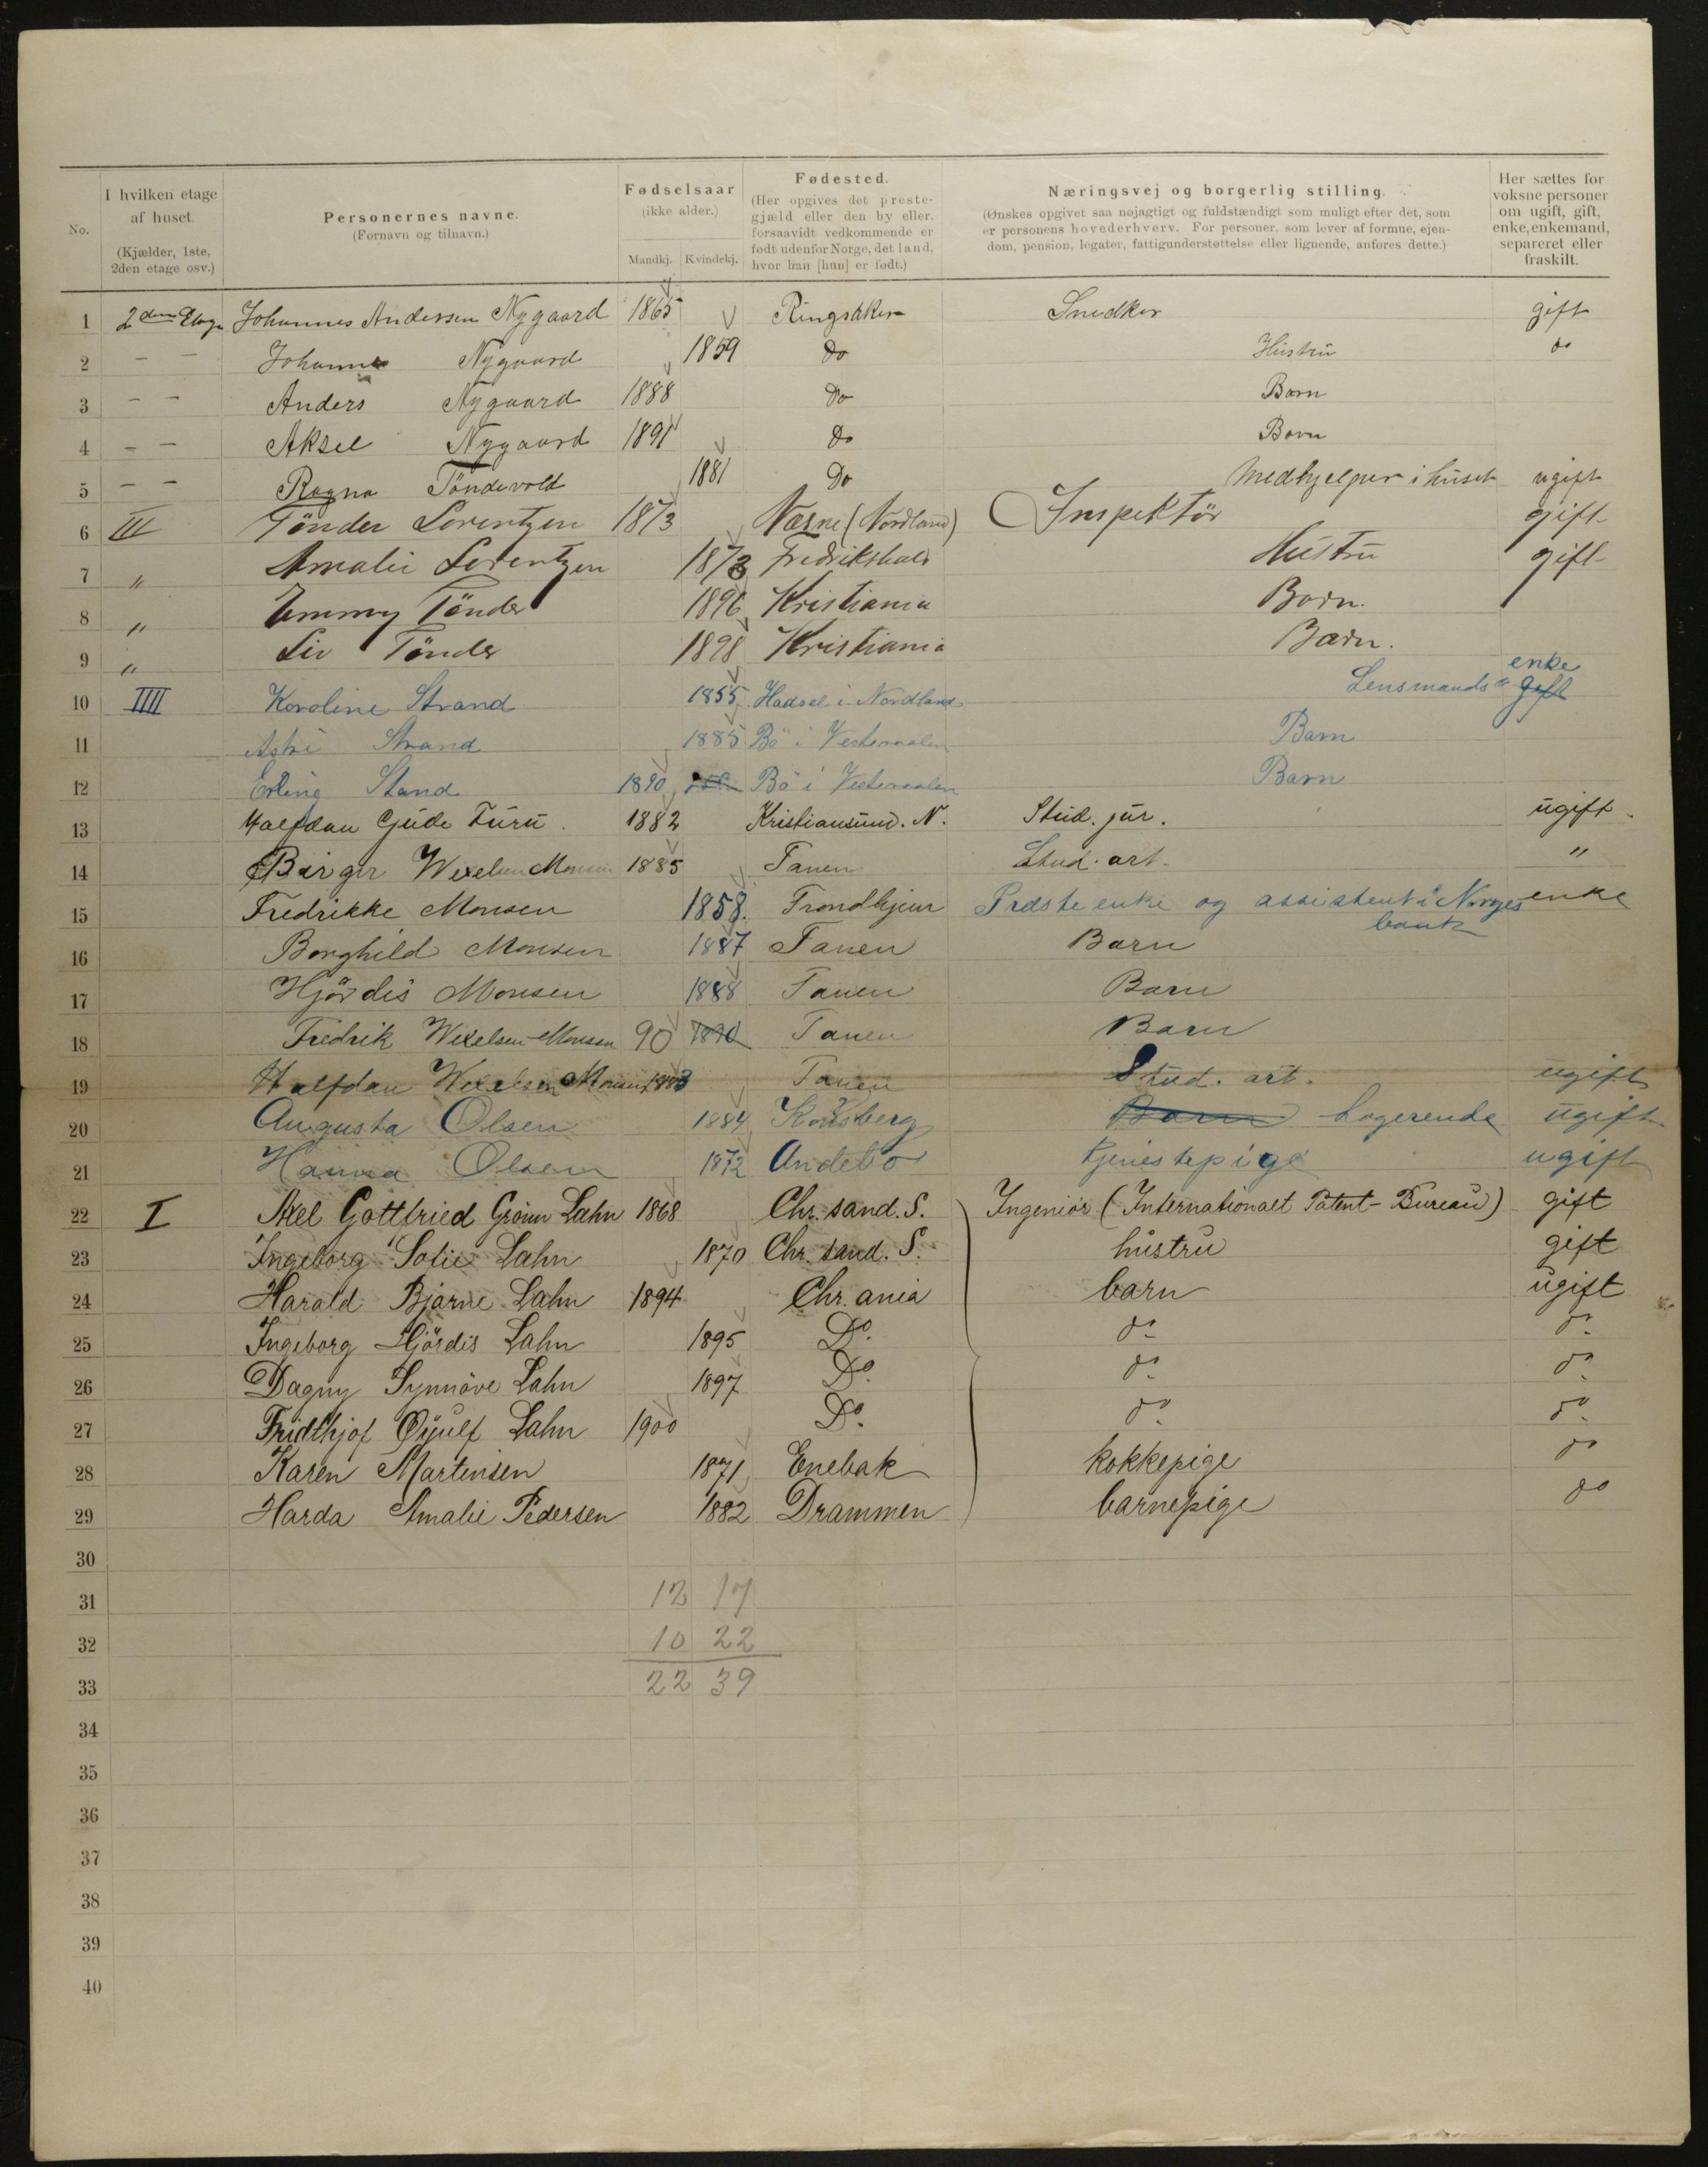 No. | I hvilken etage af huset. (Kjælder, 1ste, 2den etage osv.) | Personernes navne. (Fornavn og tilnavn.) | Fødselsaar (ikke alder.) Mandkj. Kvindekj. | Fødested. (Her opgives det prestegjæld eller den by eller, forsaavidt vedkommende er født udenfor Norge, det land, hvor han [hun] er født.) | Næringsvej og borgerlig stilling. (Ønskes opgivet saa nøjagtigt og fuldstændigt som muligt efter det, som er personens hovederhverv. For personer, som lever af formue, ejendom, pension, legater, fattigunderstøttelse eller lignende, anføres dette.) | Her sættes for voksne personer om ugift, gift, enke, enkemand, separeret eller fraskilt.
1 2den Etage Johannes Andersen Nygaard 1865 Ringsaker Snedker gift
2 — — Johanne Nygaard 1859 Do Hustru do
3 — — Anders Nygaard 1888 Do Barn
4 — — Aksel Nygaard 1891 Do Barn
5 — — Ragna Töndevold 1881 Do Medhjelper i huset ugift
6 III Tönder Lorentzen 1873 Næsne (Nordland) Inspektör gift
7 " Amalie Lorentzen 1873 Fredrikshald Hustru gift
8 " Emmy Tönder 1896 Kristiania Barn.
9 " Liv Tönder 1898 Kristiania Barn.
10 IIII Karoline Strand 1855 Hadsel i Nordland Lensmands " enke gift
11 Astri Strand 1885 Bö i Vesteraalen Barn
12 Erling Stand 1890 Bö i Vesteraalen Barn
13 Halfdan Gude Furu. 1882 Kristiansund. N. Stud. jur. ugift.
14 Birger Wexelsen Monsen 1885 Tanen Stud. art. "
15 Fredrikke Monsen 1858. Trondhjem Prdste enke og assistent i Norges bank enke
16 Borghild Monsen 1887 Tanen Barn
17 Hjördis Monsen 1888 Tanen Barn
18 Fredrik Wexelsen Monsen 90 1890 Tanen Barn
19 Halfdan Wexelsen Monsen 1883 Tanen Stud. art. ugift
20 Augusta Olsen 1884 Konsberg Barn Logerende ugift
21 Hanna Olsen 1872 Andebo tjenestepige ugift
22 I Axel Gottfried Grönn Lahn 1868 Chr. sand. S. Ingeniör (Internationalt Patent-Bureau) gift
23 Ingeborg Sofie Lahn 1870 Chr. sand. S. hustru gift
24 Harald Bjarne Lahn 1894 Chr. ania barn ugift
25 Ingeborg Hjördis Lahn 1895 Do. do do
26 Dagny Synnöve Lahn 1897 Do. do do
27 Fridthjof Öyulf Lahn 1900 Do. do do
28 Karen Martinsen 1871 Enebak kokkepige do
29 Harda Amalie Pedersen 1882 Drammen barnepige do
30
31 12 17
32 10 22
33 22 39
34
35
36
37
38
39
40